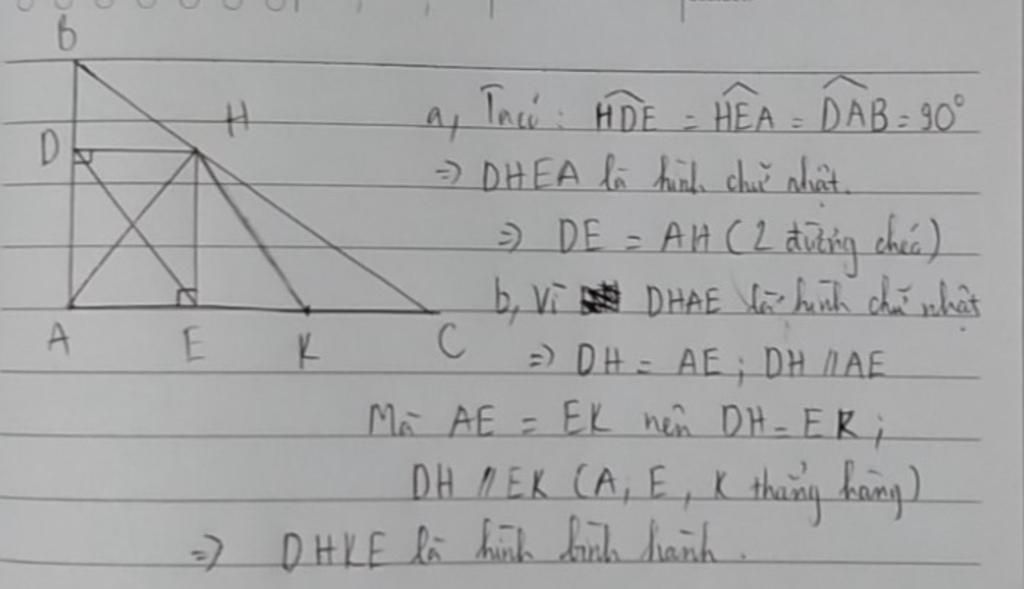 B
H
D
A E K C
a, Ta có: HDE = HEA = DAB = 90°
=> DHEA là hình chữ nhật.
=> DE = AH (2 đường chéo)
b, Vì DHAE là hình chữ nhật
=> DH = AE ; DH // AE
Mà AE = EK nên DH = EK ;
DH // EK (A, E, K thẳng hàng)
=> DHKE là hình bình hành.